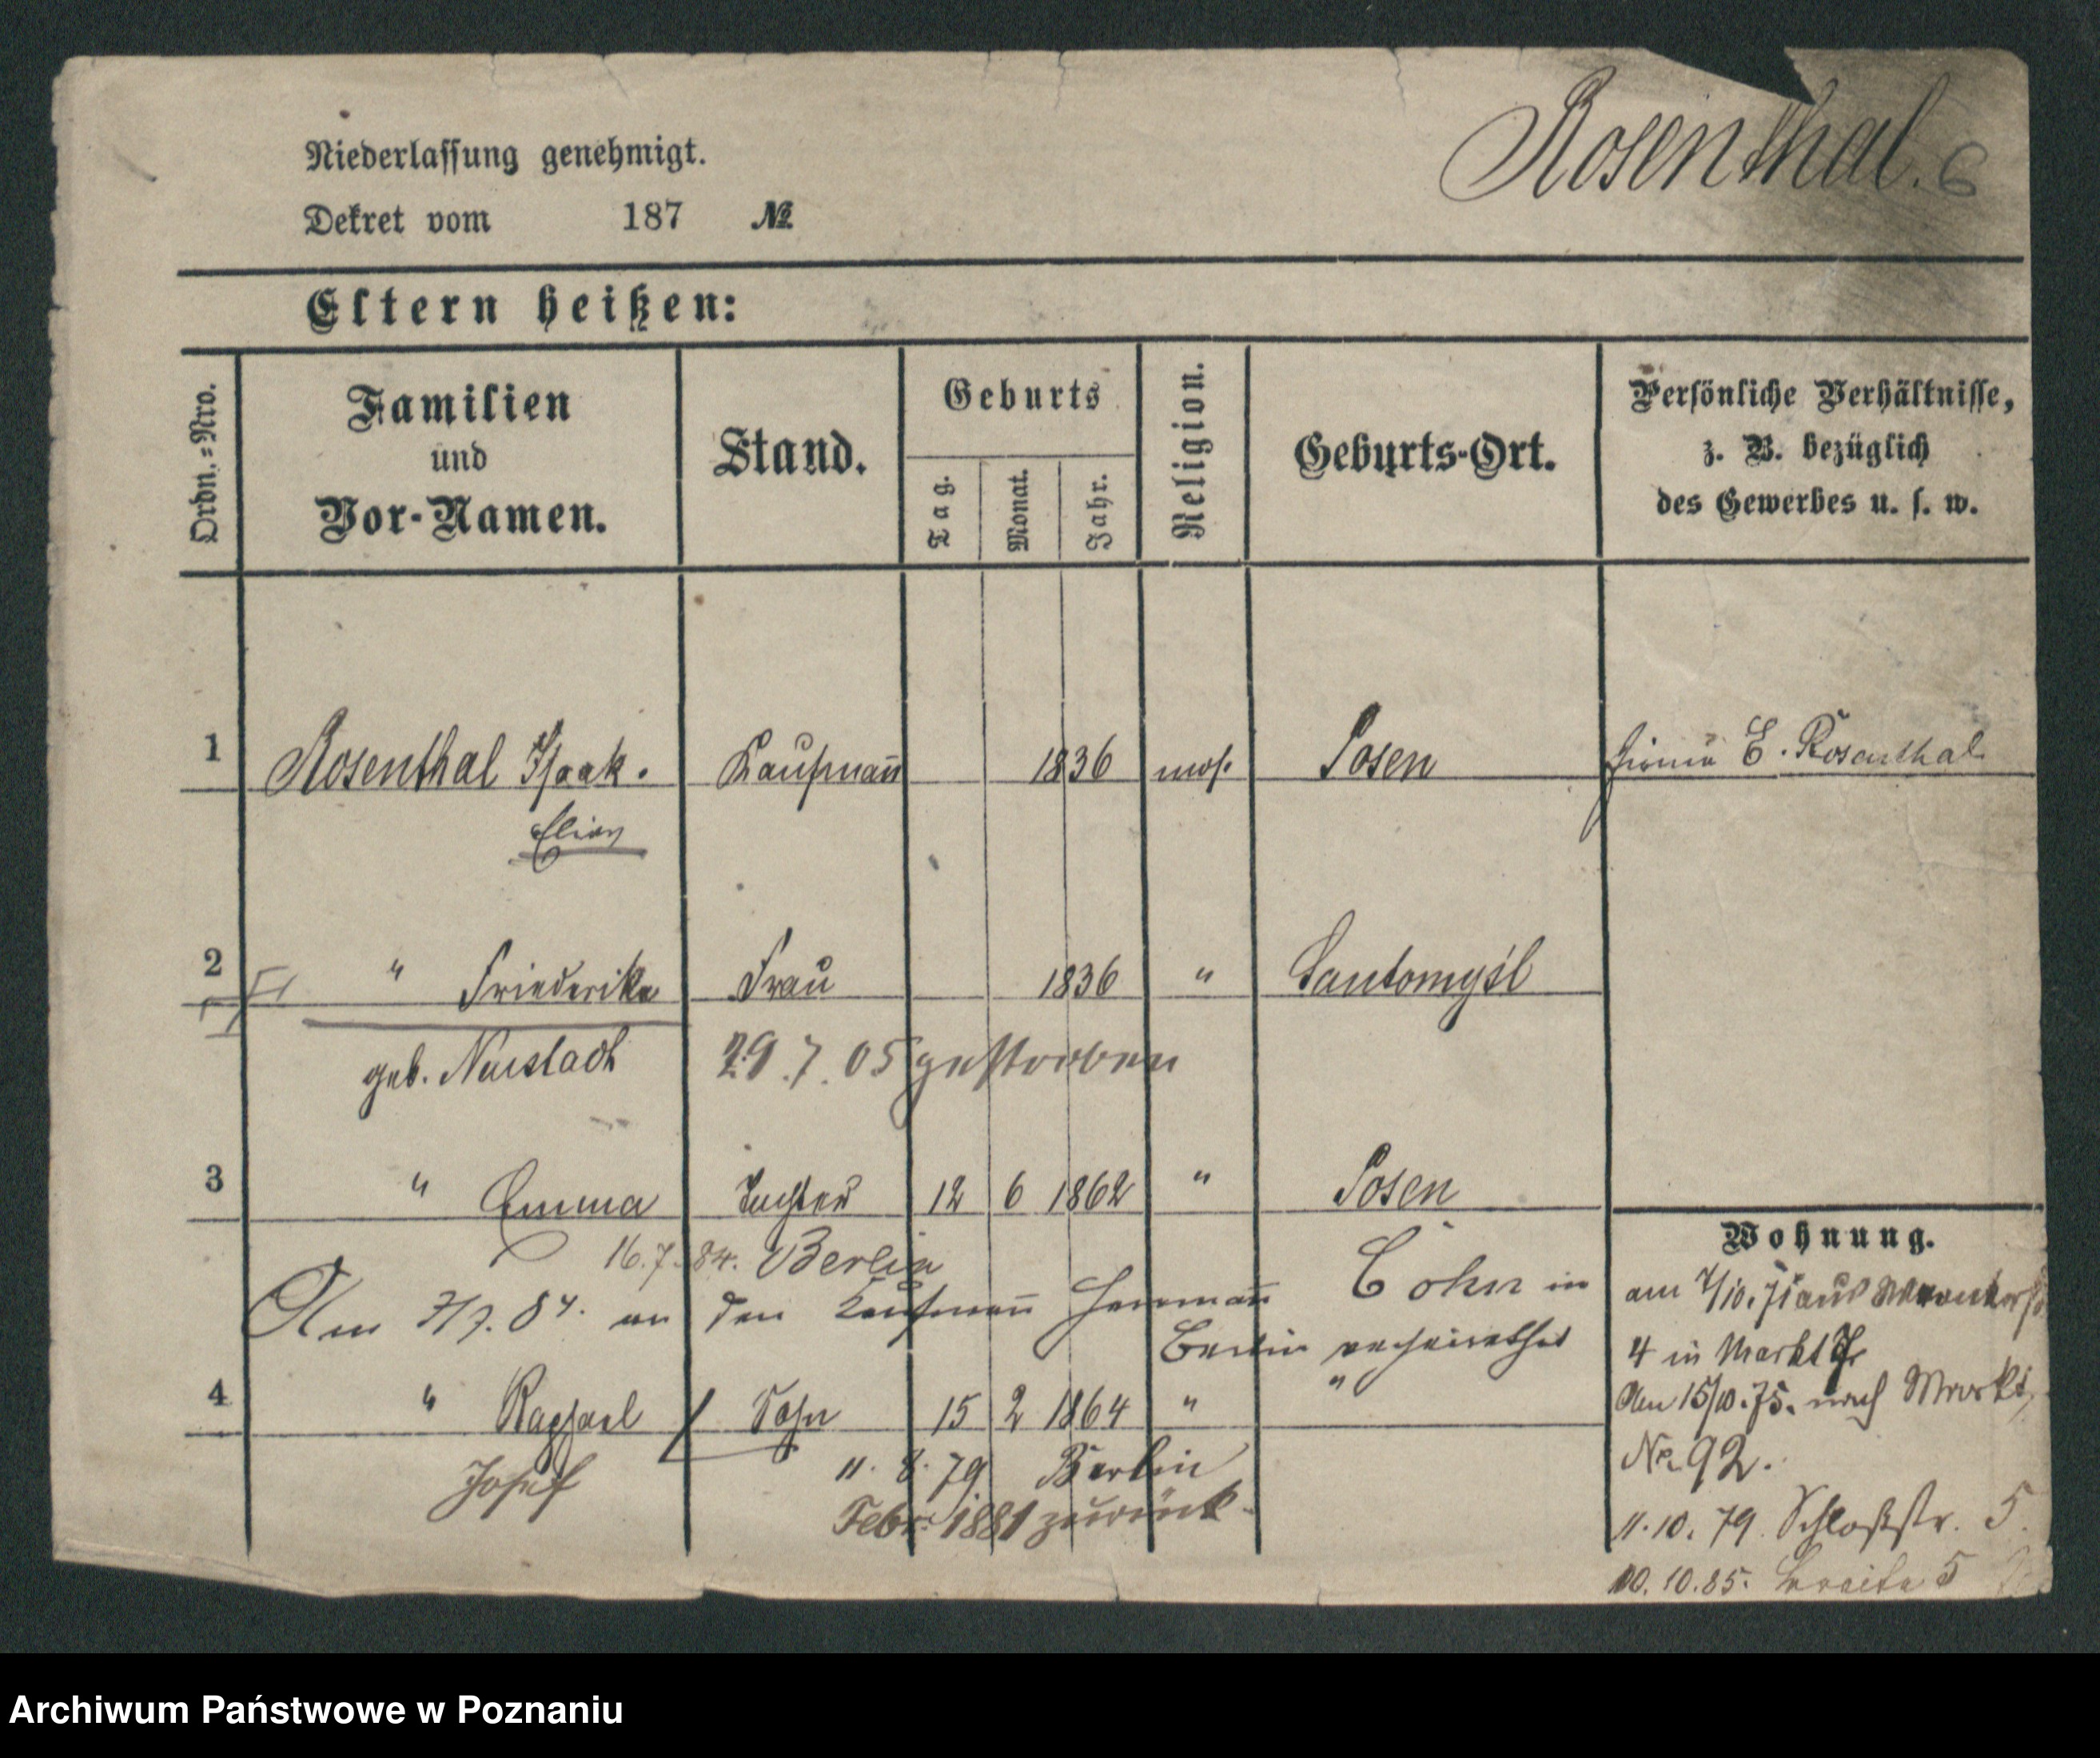 Rosenthal. 6
Niederlassung genehmigt.
Dekret vom 187 №
Eltern heißen:
Ordn.=Nro. Familien und Vor-Namen. Stand. Geburts Tag. Monat. Jahr. Religion. Geburts-Ort. Persönliche Verhältnisse, z. B. bezüglich des Gewerbes u. s. w.
1 Rosenthal Isaak. Kaufmañ 1836 mos. Posen Firma E. Rosenthal
Elias
2 " Friederike Frau 1836 " Santomysl
geb. Neustadt 29.7.05 gestorben
3 " Emma Tochter 12 6 1862 " Posen
16.7.84. Berlin
Am 84. an den Kaufmañ Hermañ Cohn in
Berlin verheirathet
4 " Raphael Sohn 15 2 1864 " "
Josef 11. 8. 79 Berlin
Febr. 1881 zurück
Wohnung.
am /10. 71 aus
4 in Markt
Am 15/10. 75. nach Markt
No 92.
11.10.79. Schloßstr. 5.
10.10.85. Breite 5
Archiwum Państwowe w Poznaniu